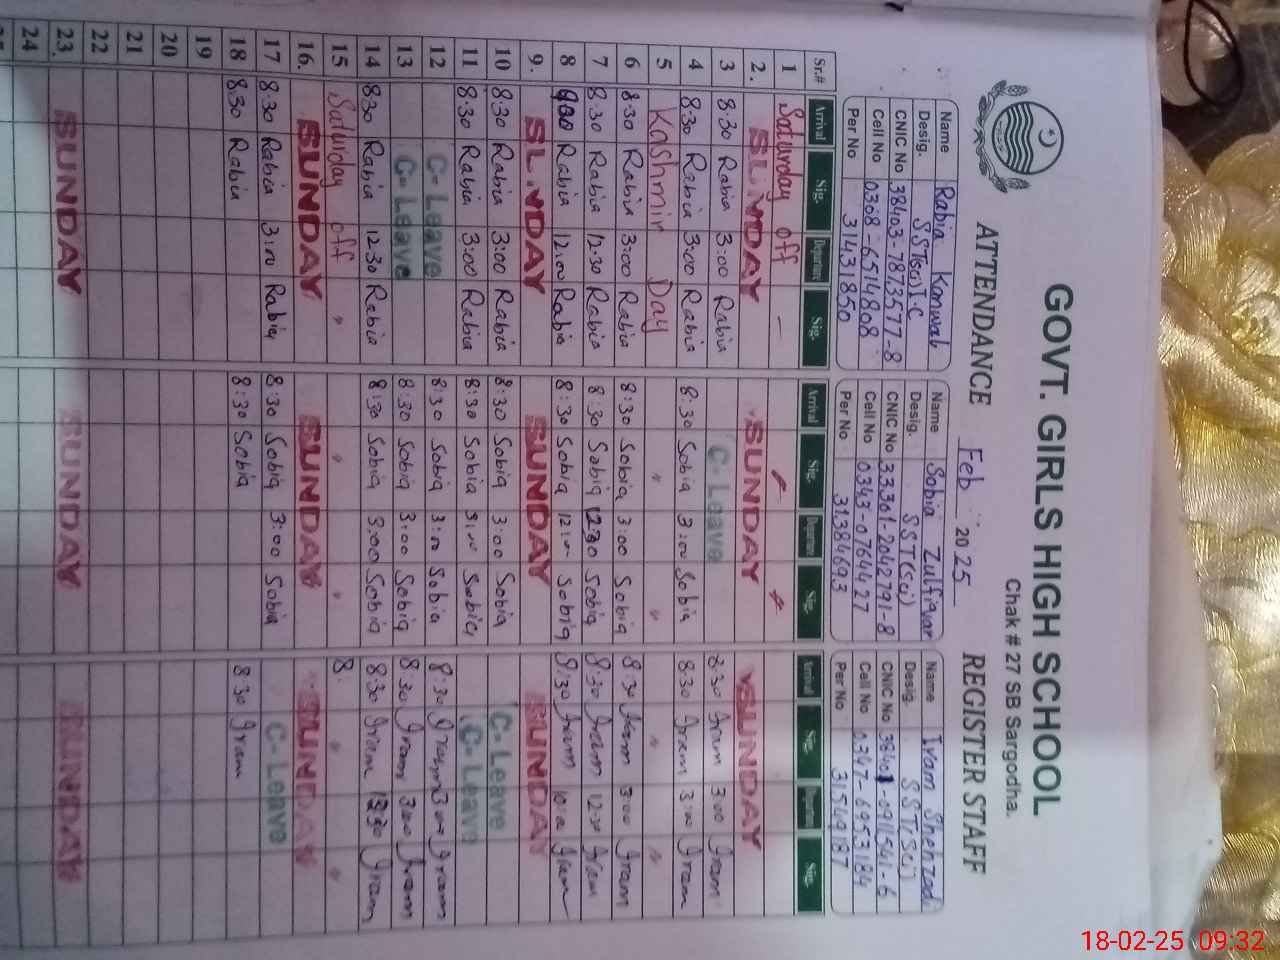 GOVT. GIRLS HIGH SCHOOL
Chak # 27 SB Sargodha.
ATTENDANCE Feb 2025 REGISTER STAFF
Name Rabia Kanwal Name Sobia Zulfiqar Name Iram Shehzadi
Desig. SST(sci) I.C Desig. SST(Sci) Desig. SST(Sci)
CNIC No 38403-7873577-8 CNIC No 33301-2042791-8 CNIC No 38401-0911541-6
Cell No 0308-6514808 Cell No 0343-0764427 Cell No 0347-6953184
Per No 31431850 Per No 31384693 Per No 31549187
Sr.# Arrival Sig. Departure Sig. Arrival Sig. Departure Sig. Arrival Sig. Departure Sig.
1 Saturday off –
2. SUNDAY SUNDAY SUNDAY
3 8:30 Rabia 3:00 Rabia C-Leave 8:30 Iram 3:00 Iram
4 8:30 Rabia 3:00 Rabia 8:30 Sobia 3:00 Sobia 8:30 Iram 3:00 Iram
5 Kashmir Day " " " "
6 8:30 Rabia 3:00 Rabia 8:30 Sobia 3:00 Sobia 8:30 Iram 3:00 Iram
7 8:30 Rabia 12:30 Rabia 8:30 Sobia 12:30 Sobia 8:30 Iram 12:30 Iram
8 Rabia 12:00 Rabia 8:30 Sobia 12:00 Sobia 8:30 Iram Iram
9. SUNDAY SUNDAY SUNDAY
10 8:30 Rabia 3:00 Rabia 8:30 Sobia 3:00 Sobia C-Leave
11 8:30 Rabia 3:00 Rabia 8:30 Sobia 3:00 Sobia C-Leave
12 C-Leave 8:30 Sobia 3:00 Sobia 8:30 Iram 3:00 Iram
13 C-Leave 8:30 Sobia 3:00 Sobia 8:30 Iram 3:00 Iram
14 8:30 Rabia 12:30 Rabia 8:30 Sobia 3:00 Sobia 8:30 Iram 12:30 Iram
15 Saturday off " " " 8. " "
16. SUNDAY SUNDAY SUNDAY
17 8:30 Rabia 3:00 Rabia 8:30 Sobia 3:00 Sobia C-Leave
18 8:30 Rabia 8:30 Sobia 8:30 Iram
19
20
21
22
23. SUNDAY SUNDAY SUNDAY
24
18-02-25 09:32